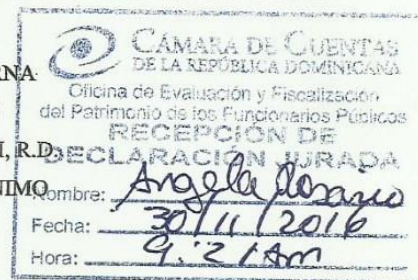 CÁMARA DE CUENTAS
DE LA REPÚBLICA DOMINICANA
RNA
Oficina de Evaluación y Fiscalización
del Patrimonio de los Funcionarios Públicos
RECEPCIÓN DE
I, R.D.
DECLARACIÓN JURADA
NIMO
Nombre: Angela Rosario
Fecha: 30/11/2016
Hora: 9:21 Am